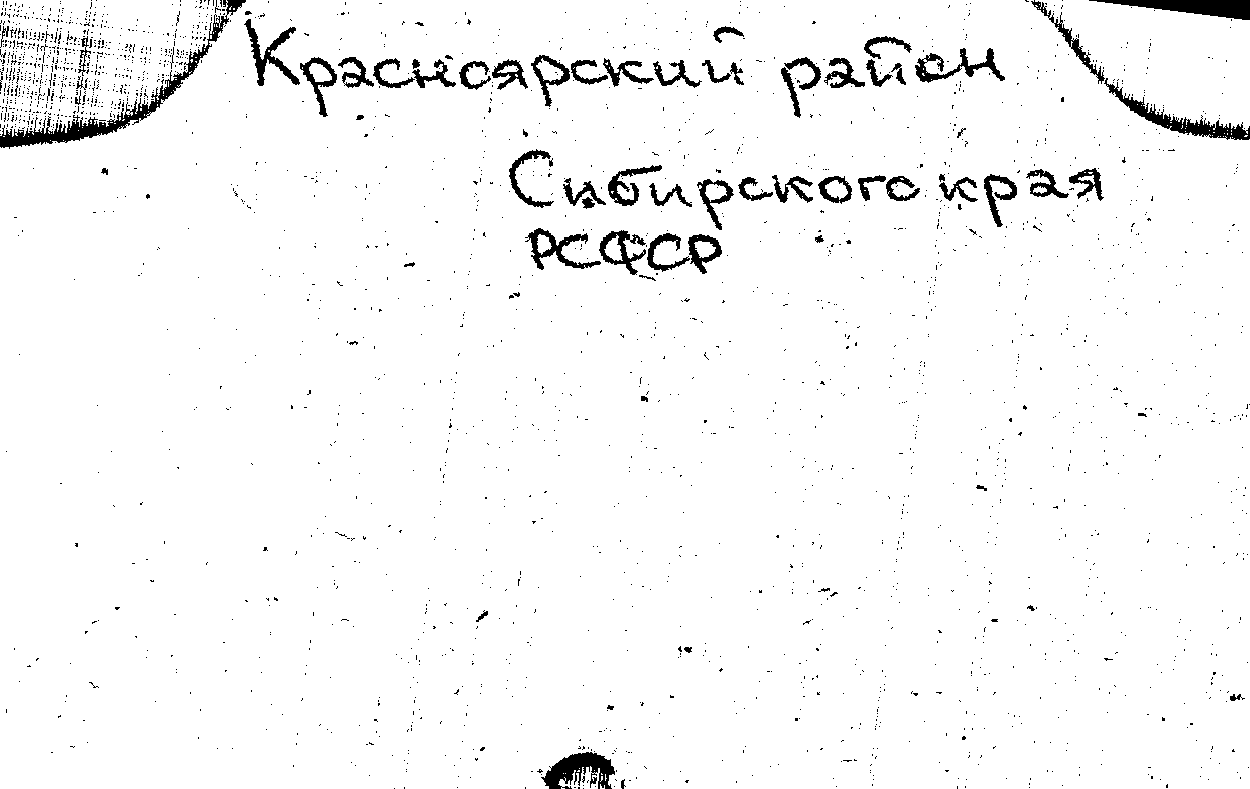 Красноярский район
Сибирского края
РСФСР